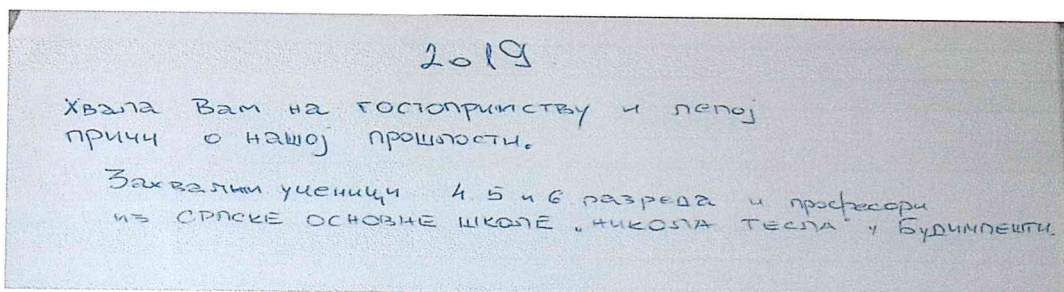 2019
Хвала Вам на гостопримству и лепој
причи о нашој прошлости.
Захвални ученици 4 5 и 6 разреда и професори
из СРПСКЕ ОСНОВНЕ ШКОЛЕ „НИКОЛА ТЕСЛА" у БУДИМПЕШТИ.